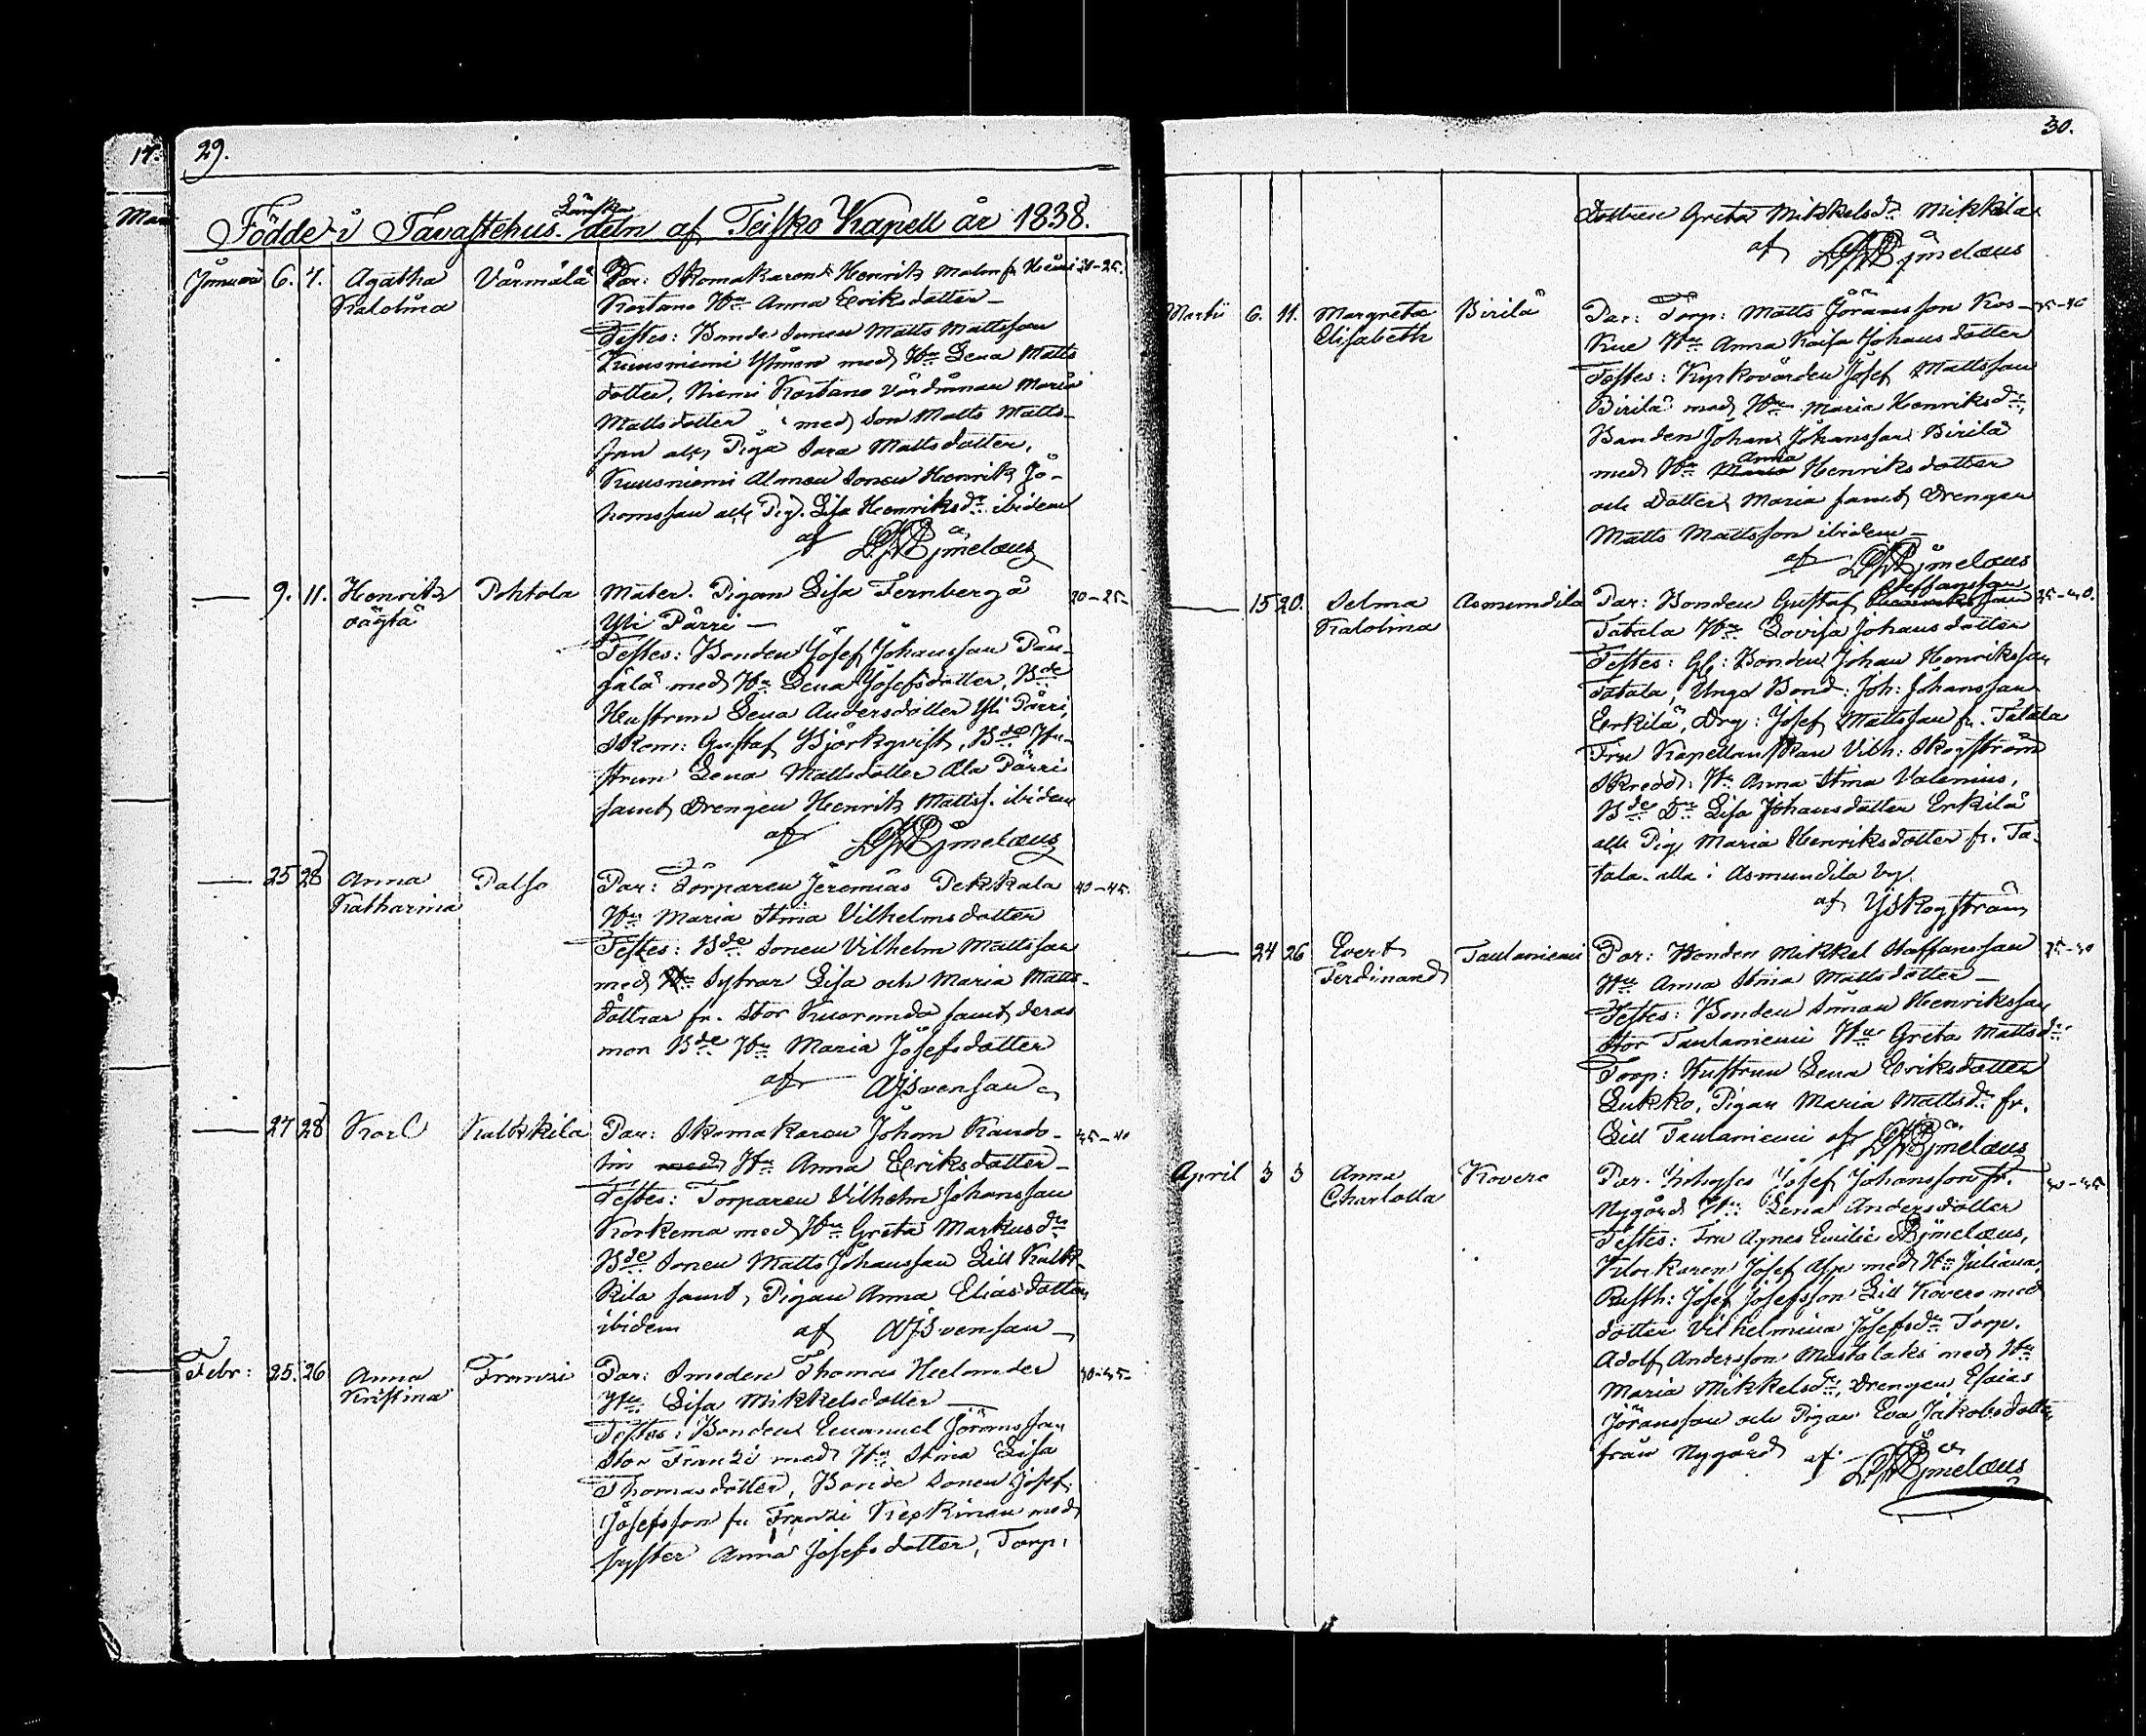 14.
29.
Man
Länska
Födde i Tavastehus deln af Teisko Kapell år 1838.
Januari 6. 7. Agatha Karolina Värmälä
Par: Skomakaren Henrik Malm fr. Niemi 20-25.
Kortano Hu Anna Eriksdotter
Testes: Bonde Sonen Matts Mattsson
Kuusniemi Ylinen med Hu Lena Matts
dotter, Niemi Kortano Värdinnan Maria
Mattsdotter med Son Matts Matts-
son och Piga Sara Mattsdotter,
Kuusniemi Alanen Sonen Henrik Jo-
hansson och Pig. Lisa Henriksdr ibidem
af
9. 11. Henrik oägta Pohtola
Mater. Pigan Lisa Fernberg å 20-25-
Yli Pärri
Testes: Bonden Josef Johansson
med Hu Lena Josefsdotter, Bde
Hustrun Lena Andersdotter Yli Pärri,
Skom: Gustaf Björkqvist, Bde Hu-
strun Lena Mattsdotter Ala Pärri
samt Drengen Henrik Mattss. ibidem
af
25 28 Anna Katharina Palho
Par: Torparen Jeremias Pekkala 40-45.
Hu Maria Stina Vilhelmsdotter
Testes: Bde Sonen Vilhelm Mattsson
med Systrar Lisa och Maria Matts-
döttrar fr. Stor Kuoranda samt deras
mor Bde Hu Maria Josefsdotter
af Svensson
27 28 Karl Kulkkila
Par: Skomakaren Johan Rando- 35-40
lin med Hu Anna Eriksdotter
Testes: Torparen Vilhelm Johansson
Korkema med Hu Greta Markusdr
Bde Sonen Matts Johansson Lill Kulk-
kila samt Pigan Anna Eliasdotter
ibidem af Svensson
Febr: 25. 26 Anna Kristina Franzi
Par: Smeden Thomas Helander 30-35-
Hu Lisa Mikkelsdotter
Testes: Bonden Emanuel Göransson
Stor Franzi med Hu Stina Lisa
Thomasdotter, Bonde Sonen Josef
Josefsson fr Franzi Kepkinen med
syster Anna Josefsdotter, Torp:
30.
dottren Greta Mikkelsdr Mikkila
af
Martii 6. 11. Margreta Elisabeth Birilä
Par: Torp: Matts Göransson Kos- 35-40
kue Hu Anna Kaisa Johansdotter
Testes: Kyrkovärden Josef Mattsson
Birilä med Hu Maria Henriksdr,
Bonden Johan Johansson Birilä
Anna
med Hu Maria Henriksdotter
och dotter Maria samt Drengen
Matts Mattsson ibidem
af
Staffansson
15 20. Selma Karolina Asmundila
Par: Bonden Gustaf Henriksson 35-40.
Tatala Hu Lovisa Johansdotter
Testes: Gl: Bonden Johan Henriksson
Tatala, Unga Bond: Joh: Johansson
Erkilä, Drg: Josef Mattsson fr. Tatala
Fru Kapellanskan Vilh: Skogström
Skredd: Hu Anna Stina Valenius,
Bde Dr Lisa Johansdotter Erkilä
och Pig Maria Henriksdotter fr. Ta-
tala. alla i Asmundila by.
af Skogström
24 26 Evert Ferdinand Taulaniemi
Par: Bonden Mikkel Staffansson 35-40
Hu Anna Stina Mattsdotter
Testes: Bonden Simon Henriksson
Stor Taulaniemi Hu Greta Mattsdr
Torp: Hustrun Lena Eriksdotter
Lukko, Pigan Maria Mattsdr fr.
Lill Taulaniemi af
April 3 3 Anna Charlotta Kovero
Par. Inhyses Josef Johansson fr. 40-45
Nygård Hu Lena Andersdotter
Testes: Fru Agnes Emilie
Klockaren Josef Asp med Hu Juliana,
Rusth: Josef Josefsson Lill Kovero med
dotter Vilhelmina Josefsdr Torp.
Adolf Andersson Mustalaks med Hu
Maria Mikkelsdr, Drengen Esaias
Göransson och Pigan Eva Jakobsdotter
från Nygård af